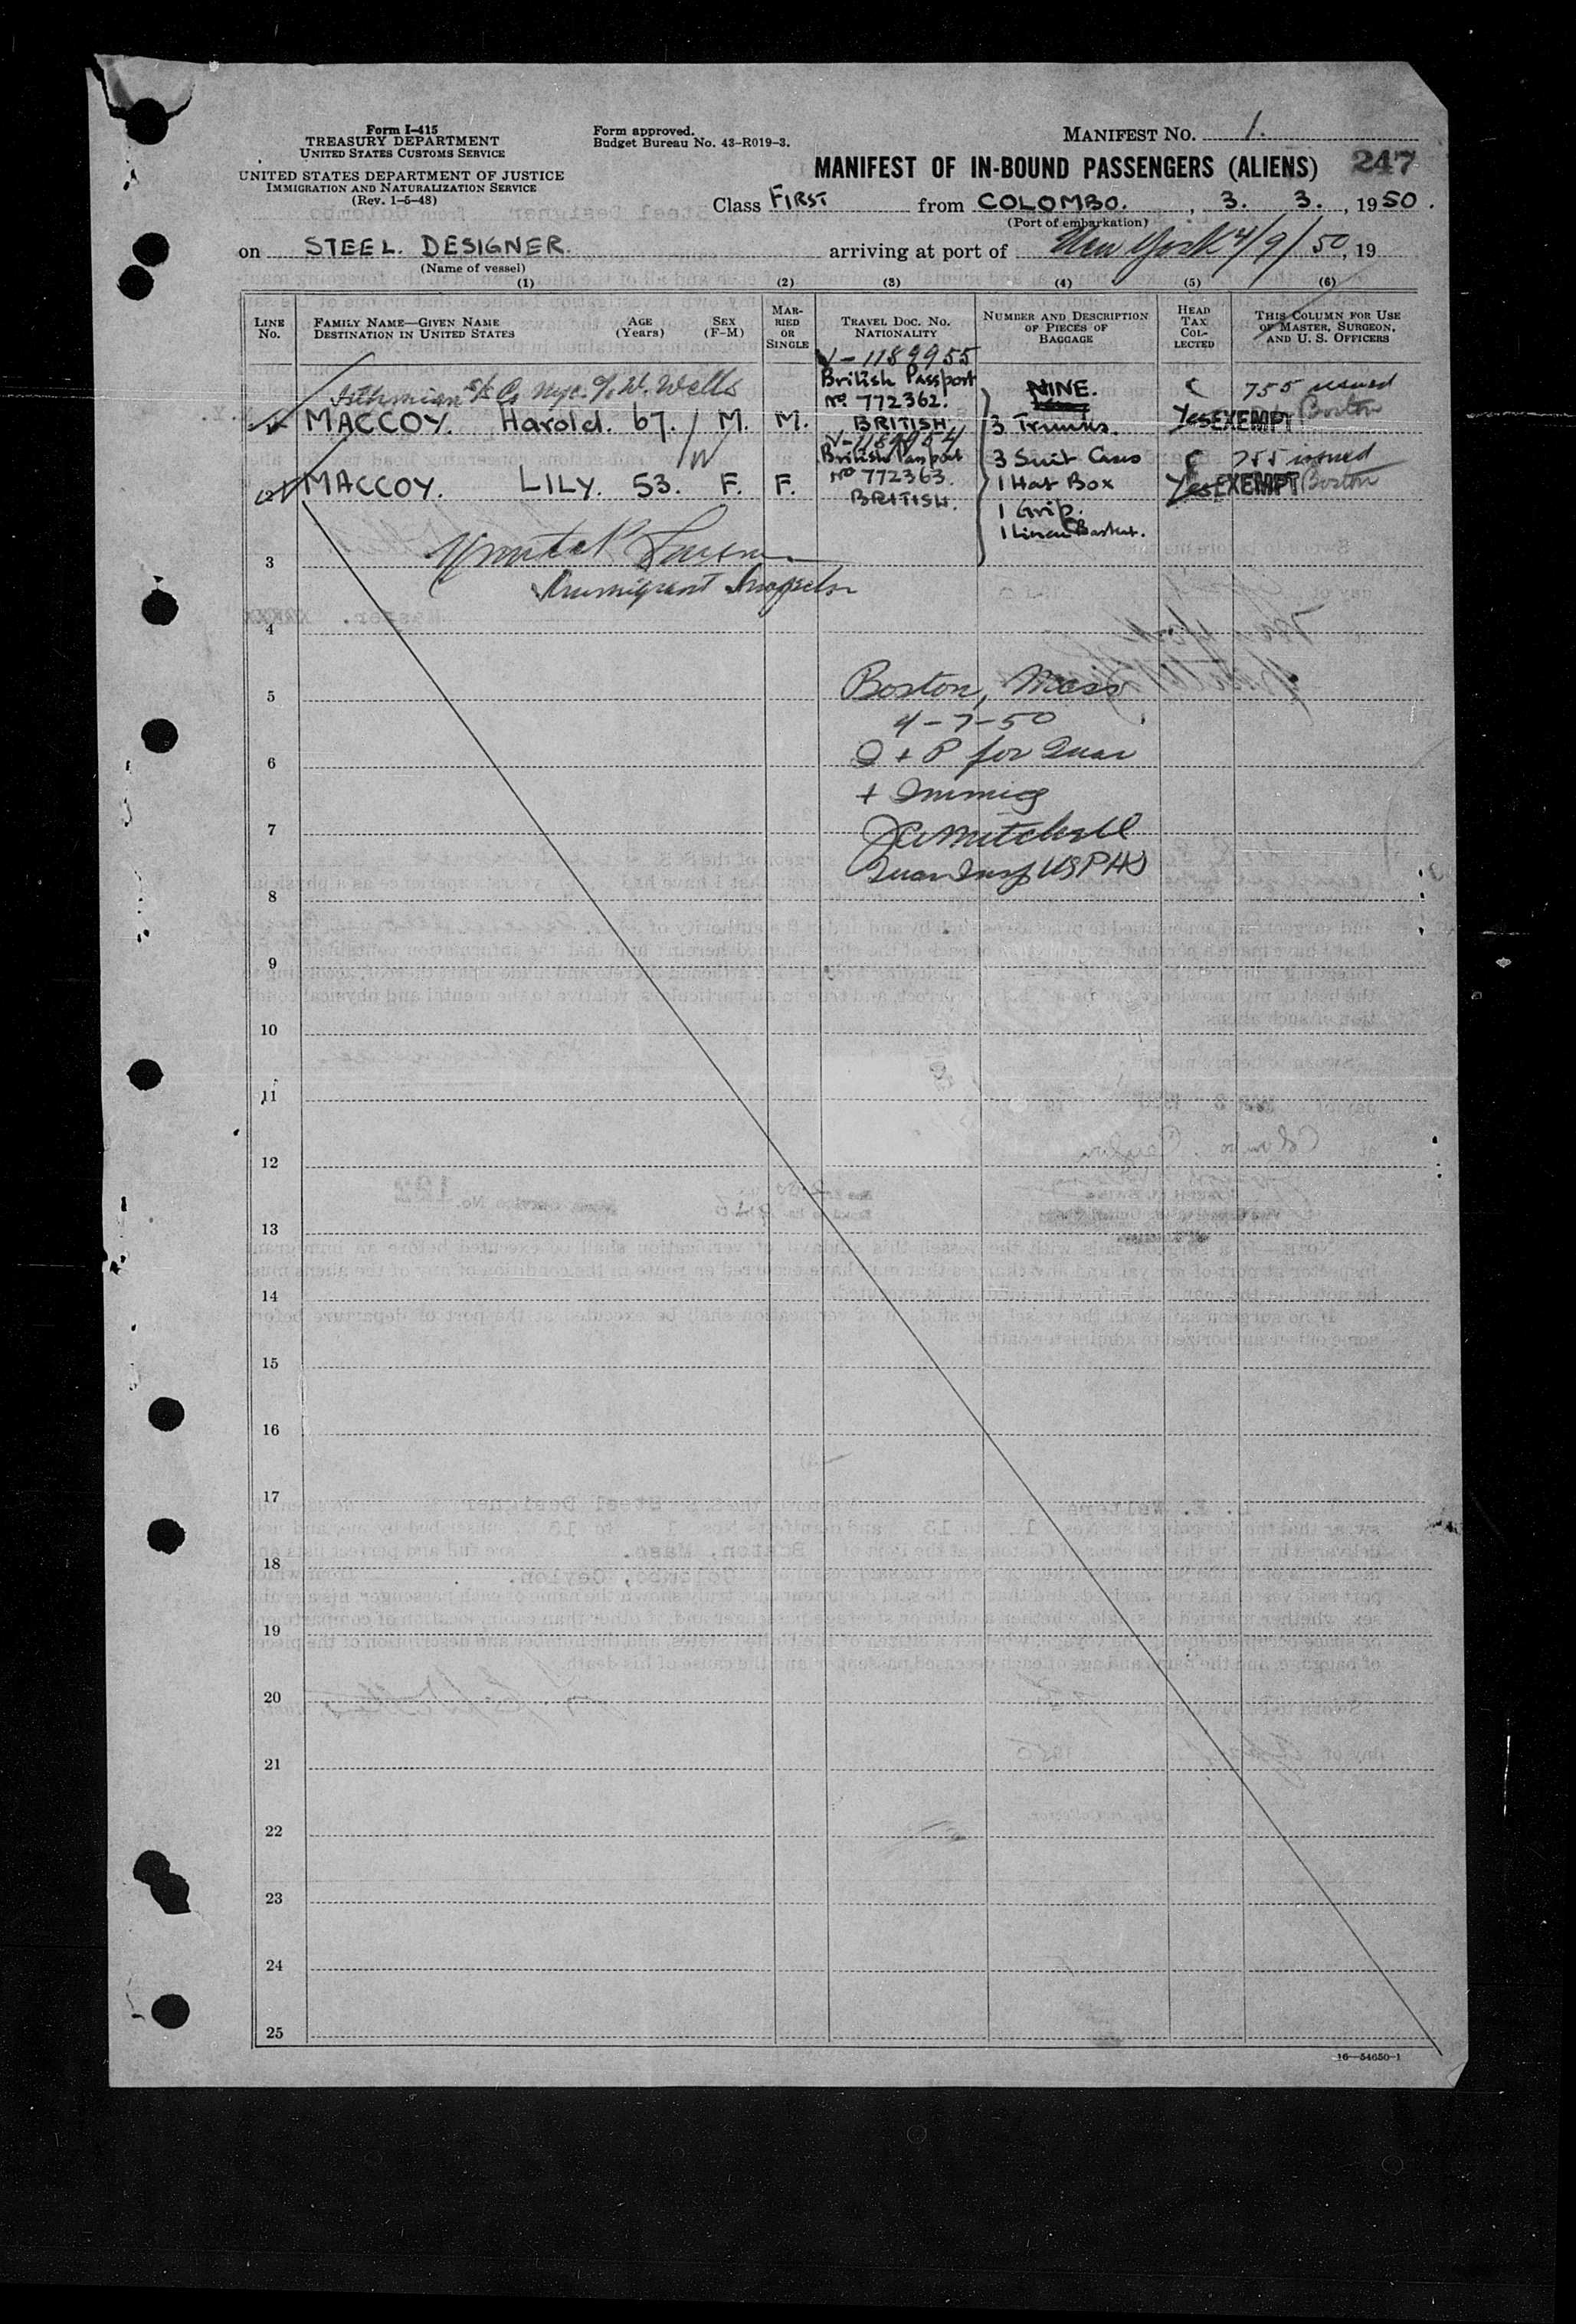 Form I-415
TREASURY DEPARTMENT
UNITED STATES CUSTOMS SERVICE
UNITED STATES DEPARTMENT OF JUSTICE
IMMIGRATION AND NATURALIZATION SERVICE
(Rev. 1-5-48)
Form approved.
Budget Bureau No. 43-R019-3.
MANIFEST NO. 1.
MANIFEST OF IN-BOUND PASSENGERS (ALIENS) 247
Class FIRST from COLOMBO. , 3. 3. , 1950.
(Port of embarkation)
on STEEL. DESIGNER. arriving at port of New York 4/9/50, 19
(Name of vessel)
(1) (2) (3) (4) (5) (6)
LINE No.
FAMILY NAME—GIVEN NAME
DESTINATION IN UNITED STATES
AGE (Years)
SEX (F-M)
MARRIED OR SINGLE
TRAVEL DOC. NO.
NATIONALITY
NUMBER AND DESCRIPTION OF PIECES OF BAGGAGE
HEAD TAX COLLECTED
THIS COLUMN FOR USE OF MASTER, SURGEON, AND U. S. OFFICERS
V-1189955
Isthmian S/S Co NYC. c/o W. Wells
British Passport
No. 772362.
NINE.
C 755 issued
MACCOY. Harold. 67. M. M. BRITISH. 3 Trunks. Yes EXEMPT Boston
W
V-1189954
British Passport
3 Suit Cases
C 755 issued
MACCOY. LILY. 53. F. F. No 772363. 1 Hat Box Yes EXEMPT Boston
BRITISH.
1 Grip.
1 Linen Basket.
3
Immigrant Inspector
4
5 Boston, Mass
4-7-50
6 I + P for Quar
+ Immig
7 JC Mitchell
Quar Insp USPHS
8
9
10
11
12
13
14
15
16
17
18
19
20
21
22
23
24
25
16—54650-1